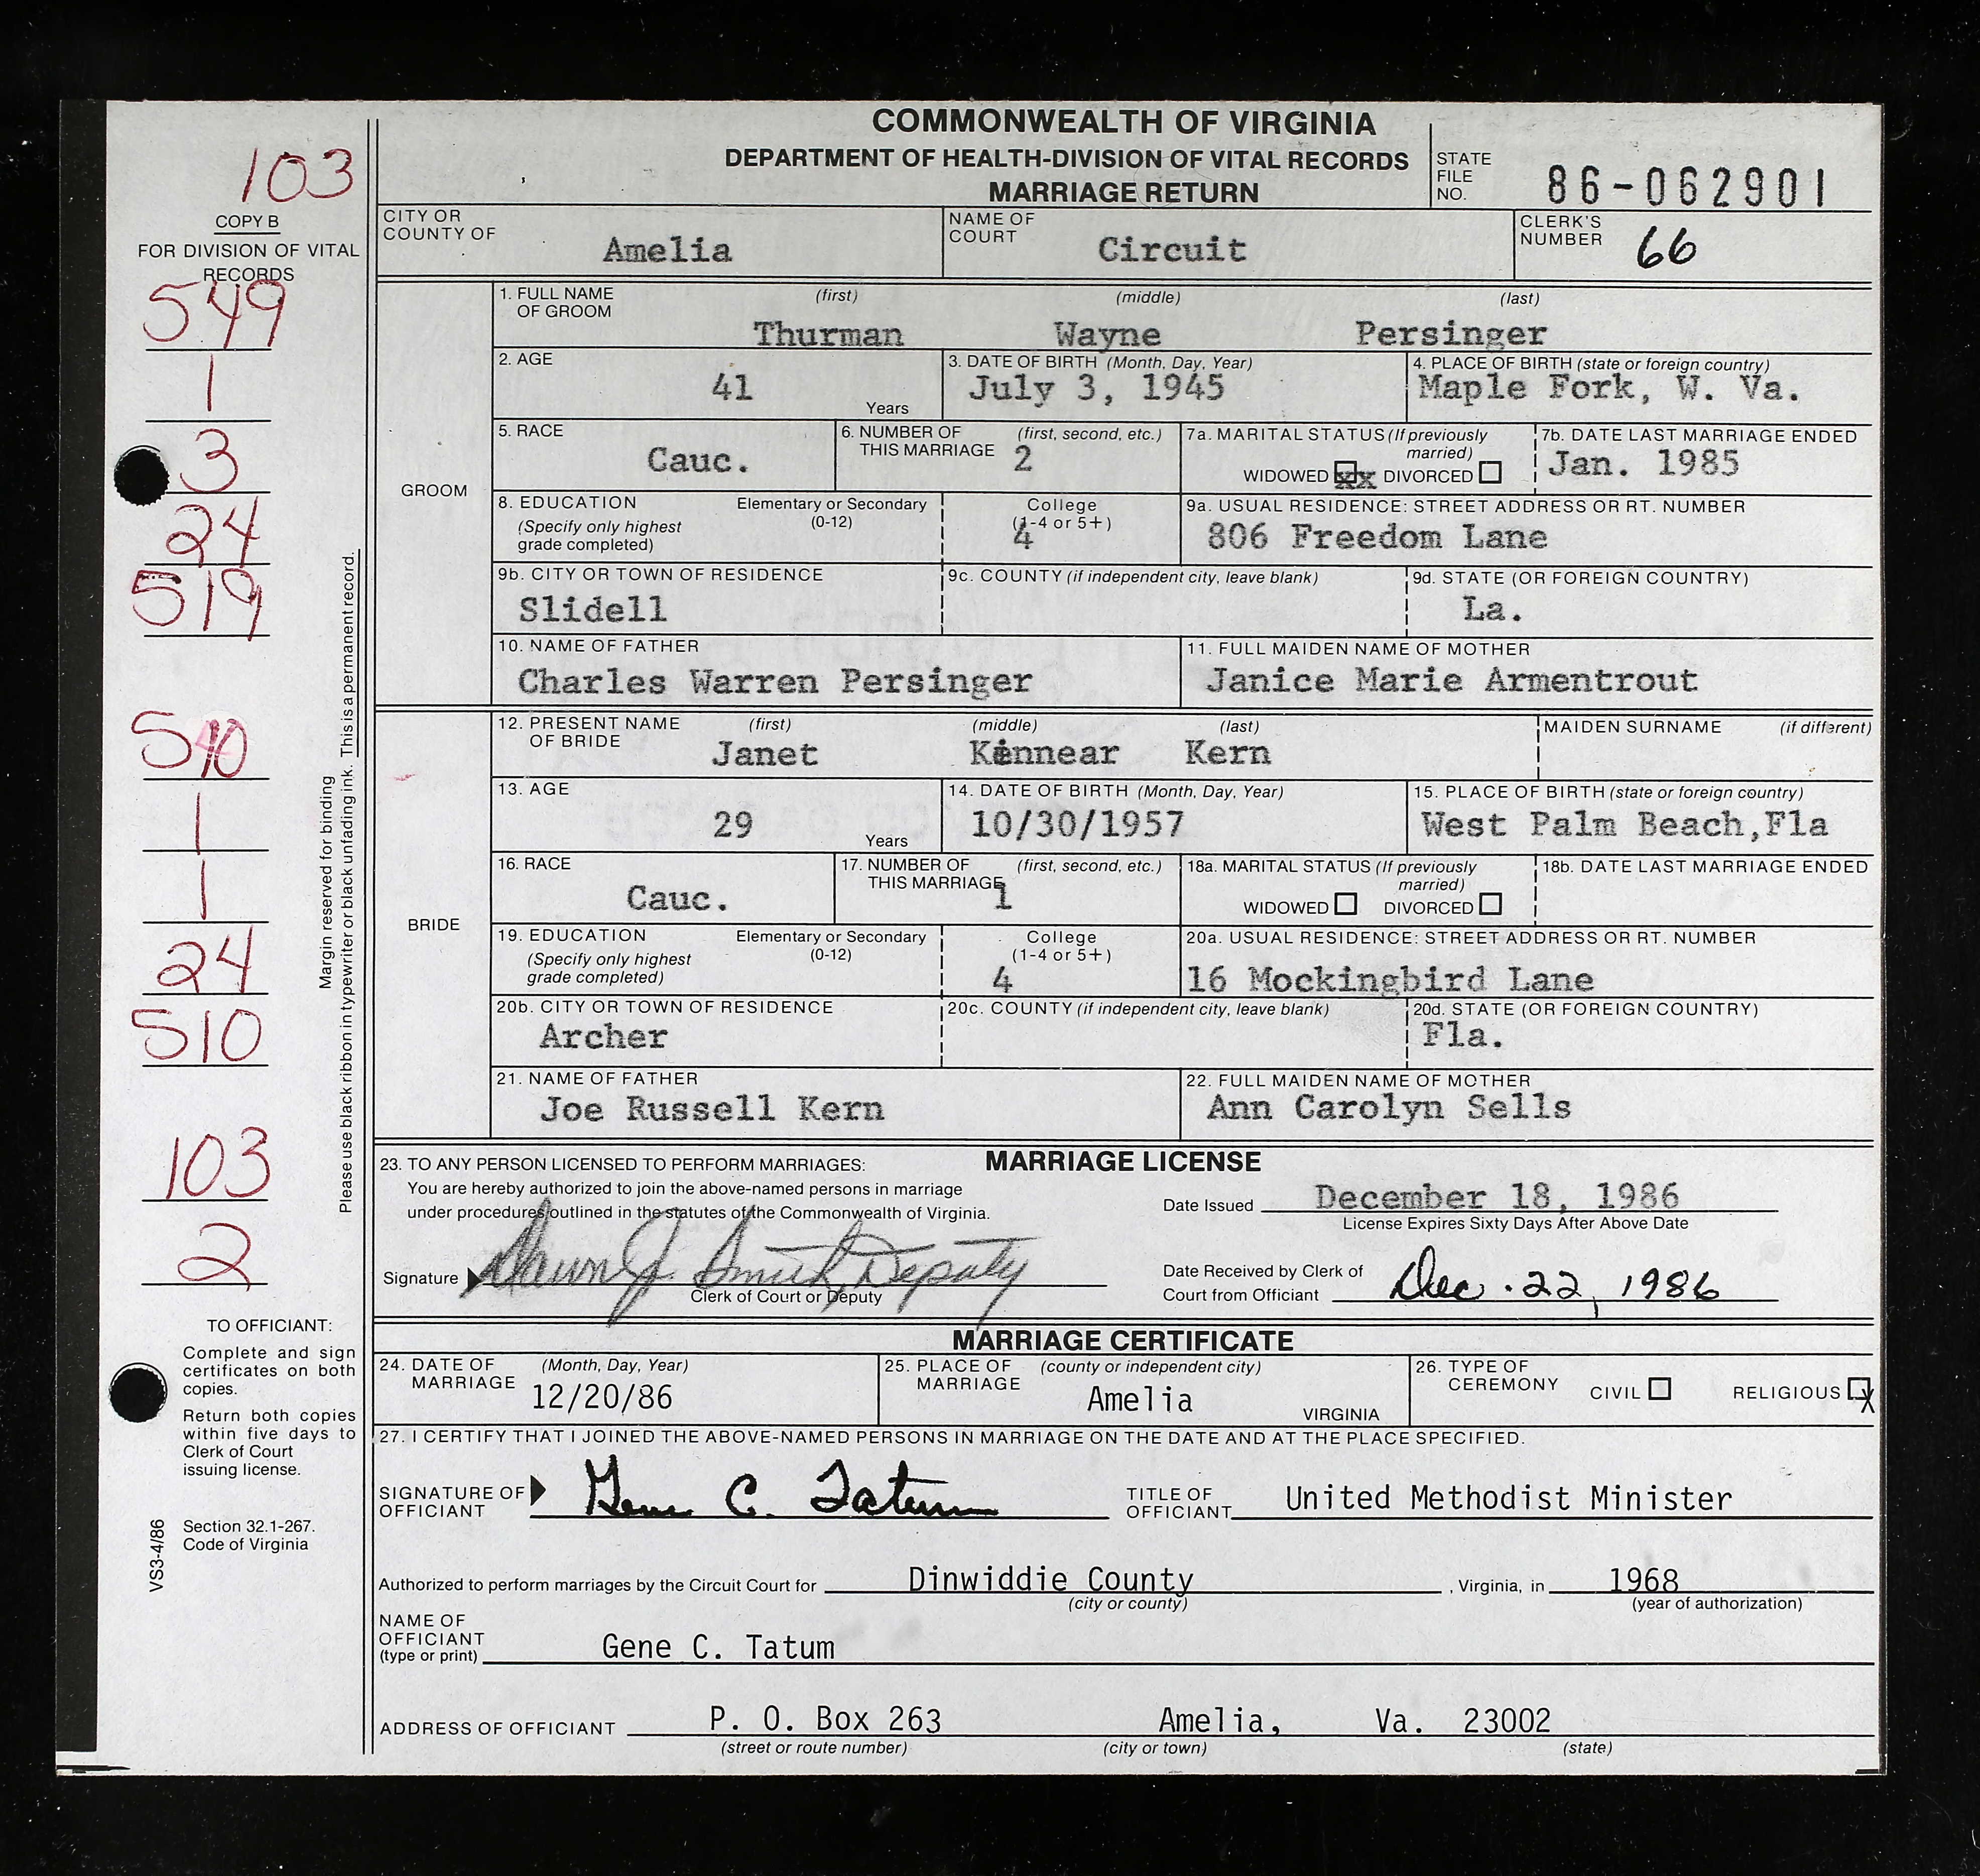 COMMONWEALTH OF VIRGINIA
DEPARTMENT OF HEALTH-DIVISION OF VITAL RECORDS
MARRIAGE RETURN
STATE FILE NO. 86-062901
103
COPY B
FOR DIVISION OF VITAL
RECORDS
549
1
3
24
519
510
1
1
24
510
103
2
Margin reserved for binding
Please use black ribbon in typewriter or black unfading ink. This is a permanent record.
TO OFFICIANT:
Complete and sign
certificates on both
copies.
Return both copies
within five days to
Clerk of Court
issuing license.
Section 32.1-267.
Code of Virginia
VS3-4/86
CITY OR COUNTY OF Amelia
NAME OF COURT Circuit
CLERK'S NUMBER 66
GROOM
1. FULL NAME OF GROOM (first) (middle) (last)
Thurman Wayne Persinger
2. AGE 41 Years
3. DATE OF BIRTH (Month, Day, Year) July 3, 1945
4. PLACE OF BIRTH (state or foreign country) Maple Fork, W. Va.
5. RACE Cauc.
6. NUMBER OF THIS MARRIAGE (first, second, etc.) 2
7a. MARITAL STATUS (If previously married)
WIDOWED xx DIVORCED
7b. DATE LAST MARRIAGE ENDED Jan. 1985
8. EDUCATION (Specify only highest grade completed) Elementary or Secondary (0-12) College (1-4 or 5+) 4
9a. USUAL RESIDENCE: STREET ADDRESS OR RT. NUMBER
806 Freedom Lane
9b. CITY OR TOWN OF RESIDENCE Slidell
9c. COUNTY (if independent city, leave blank)
9d. STATE (OR FOREIGN COUNTRY) La.
10. NAME OF FATHER Charles Warren Persinger
11. FULL MAIDEN NAME OF MOTHER Janice Marie Armentrout
BRIDE
12. PRESENT NAME OF BRIDE (first) (middle) (last) MAIDEN SURNAME (if different)
Janet Kinnear Kern
13. AGE 29 Years
14. DATE OF BIRTH (Month, Day, Year) 10/30/1957
15. PLACE OF BIRTH (state or foreign country) West Palm Beach,Fla
16. RACE Cauc.
17. NUMBER OF THIS MARRIAGE (first, second, etc.) 1
18a. MARITAL STATUS (If previously married)
WIDOWED DIVORCED
18b. DATE LAST MARRIAGE ENDED
19. EDUCATION (Specify only highest grade completed) Elementary or Secondary (0-12) College (1-4 or 5+) 4
20a. USUAL RESIDENCE: STREET ADDRESS OR RT. NUMBER
16 Mockingbird Lane
20b. CITY OR TOWN OF RESIDENCE Archer
20c. COUNTY (if independent city, leave blank)
20d. STATE (OR FOREIGN COUNTRY) Fla.
21. NAME OF FATHER Joe Russell Kern
22. FULL MAIDEN NAME OF MOTHER Ann Carolyn Sells
MARRIAGE LICENSE
23. TO ANY PERSON LICENSED TO PERFORM MARRIAGES:
You are hereby authorized to join the above-named persons in marriage
under procedures outlined in the statutes of the Commonwealth of Virginia.
Date Issued December 18, 1986
License Expires Sixty Days After Above Date
Signature Dawn J. Smith, Deputy
Clerk of Court or Deputy
Date Received by Clerk of
Court from Officiant Dec. 22, 1986
MARRIAGE CERTIFICATE
24. DATE OF MARRIAGE (Month, Day, Year) 12/20/86
25. PLACE OF MARRIAGE (county or independent city) Amelia VIRGINIA
26. TYPE OF CEREMONY CIVIL RELIGIOUS X
27. I CERTIFY THAT I JOINED THE ABOVE-NAMED PERSONS IN MARRIAGE ON THE DATE AND AT THE PLACE SPECIFIED.
SIGNATURE OF OFFICIANT Gene C. Tatum
TITLE OF OFFICIANT United Methodist Minister
Authorized to perform marriages by the Circuit Court for Dinwiddie County, Virginia, in 1968
(city or county) (year of authorization)
NAME OF OFFICIANT (type or print) Gene C. Tatum
ADDRESS OF OFFICIANT P. O. Box 263 Amelia, Va. 23002
(street or route number) (city or town) (state)